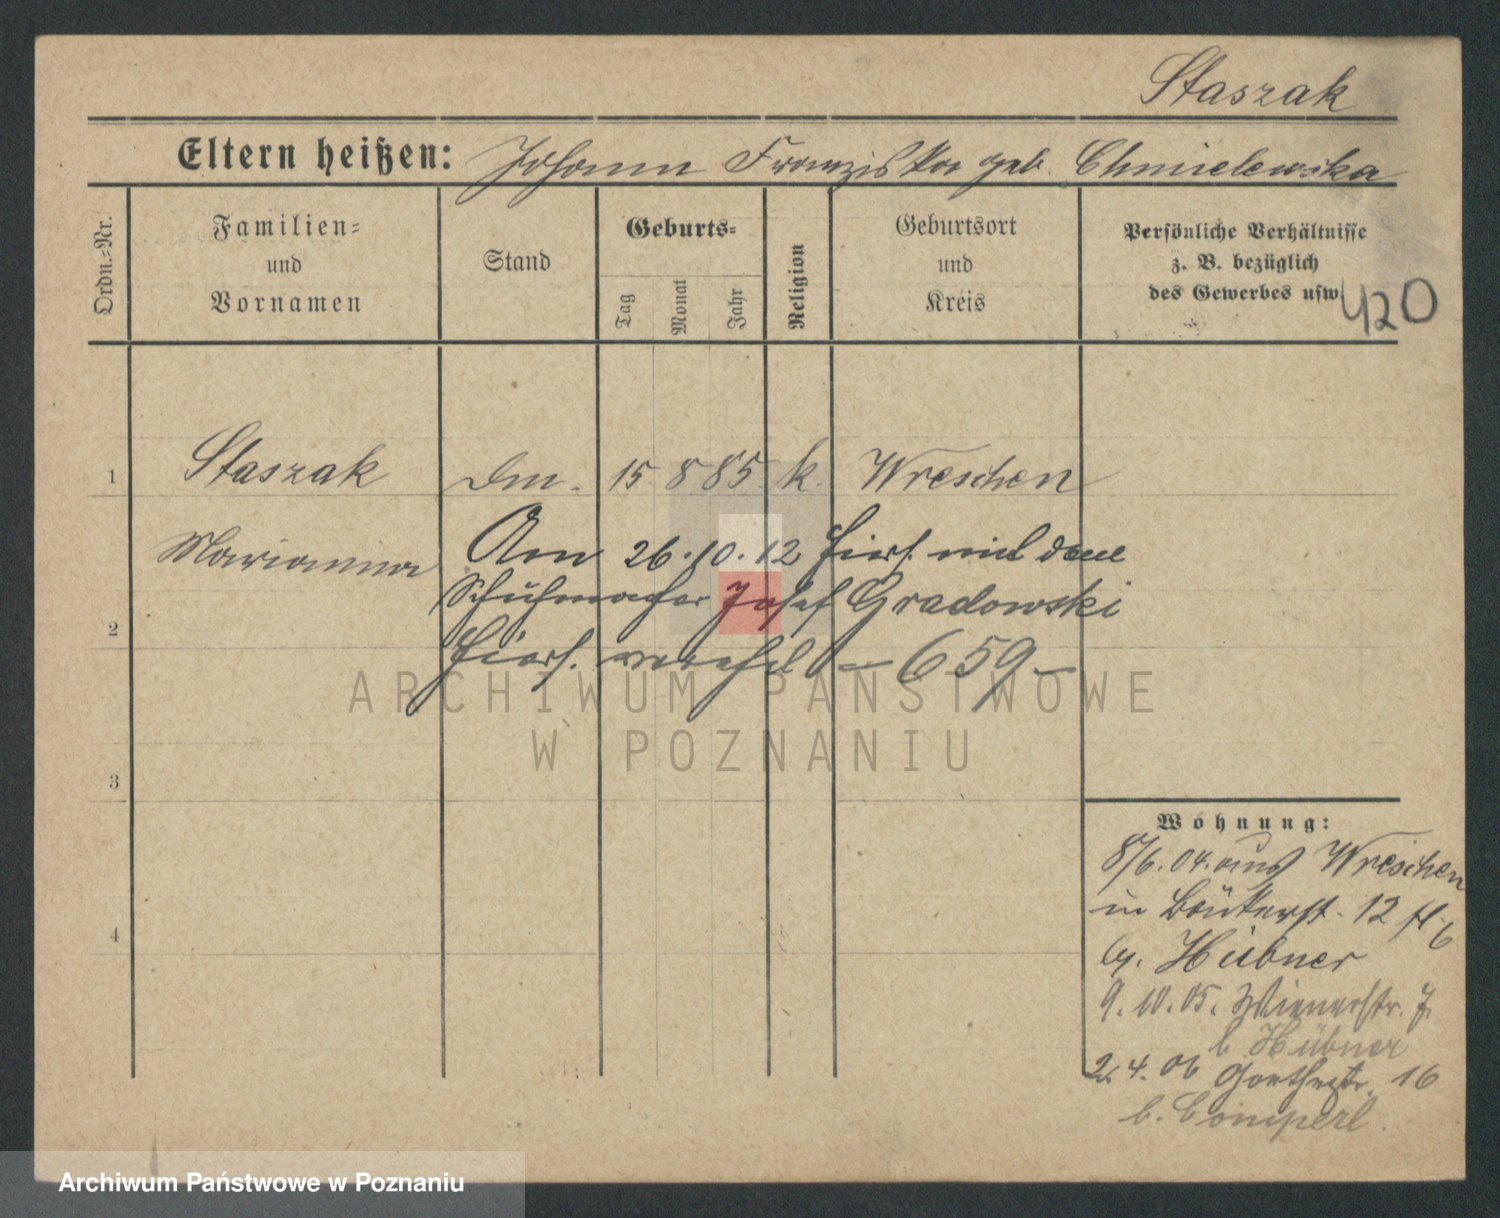 Staszak
Eltern heißen: Johann Franziska geb. Chmielewska
Ordn.-Nr.
Familien-
und
Vornamen
Stand
Geburts-
Tag
Monat
Jahr
Religion
Geburtsort
und
Kreis
Persönliche Verhältnisse
z. B. bezüglich
des Gewerbes usw.
420
1 Staszak Dm. 15 8 85 k. Wreschen
Marianna Am 26.10.12 hiers. mit dem
2 Schuhmacher Josef Gradowski
hiers. vereh. – 659 –
ARCHIWUM PAŃSTWOWE
W POZNANIU
3
4
Wohnung:
8/6.04. aus Wreschen
in Bäckerst. 12
Hübner
9.10.05. Wienerstr. 7.
b. Hübner
2.4.06 Goethestr. 16
b.
Archiwum Państwowe w Poznaniu